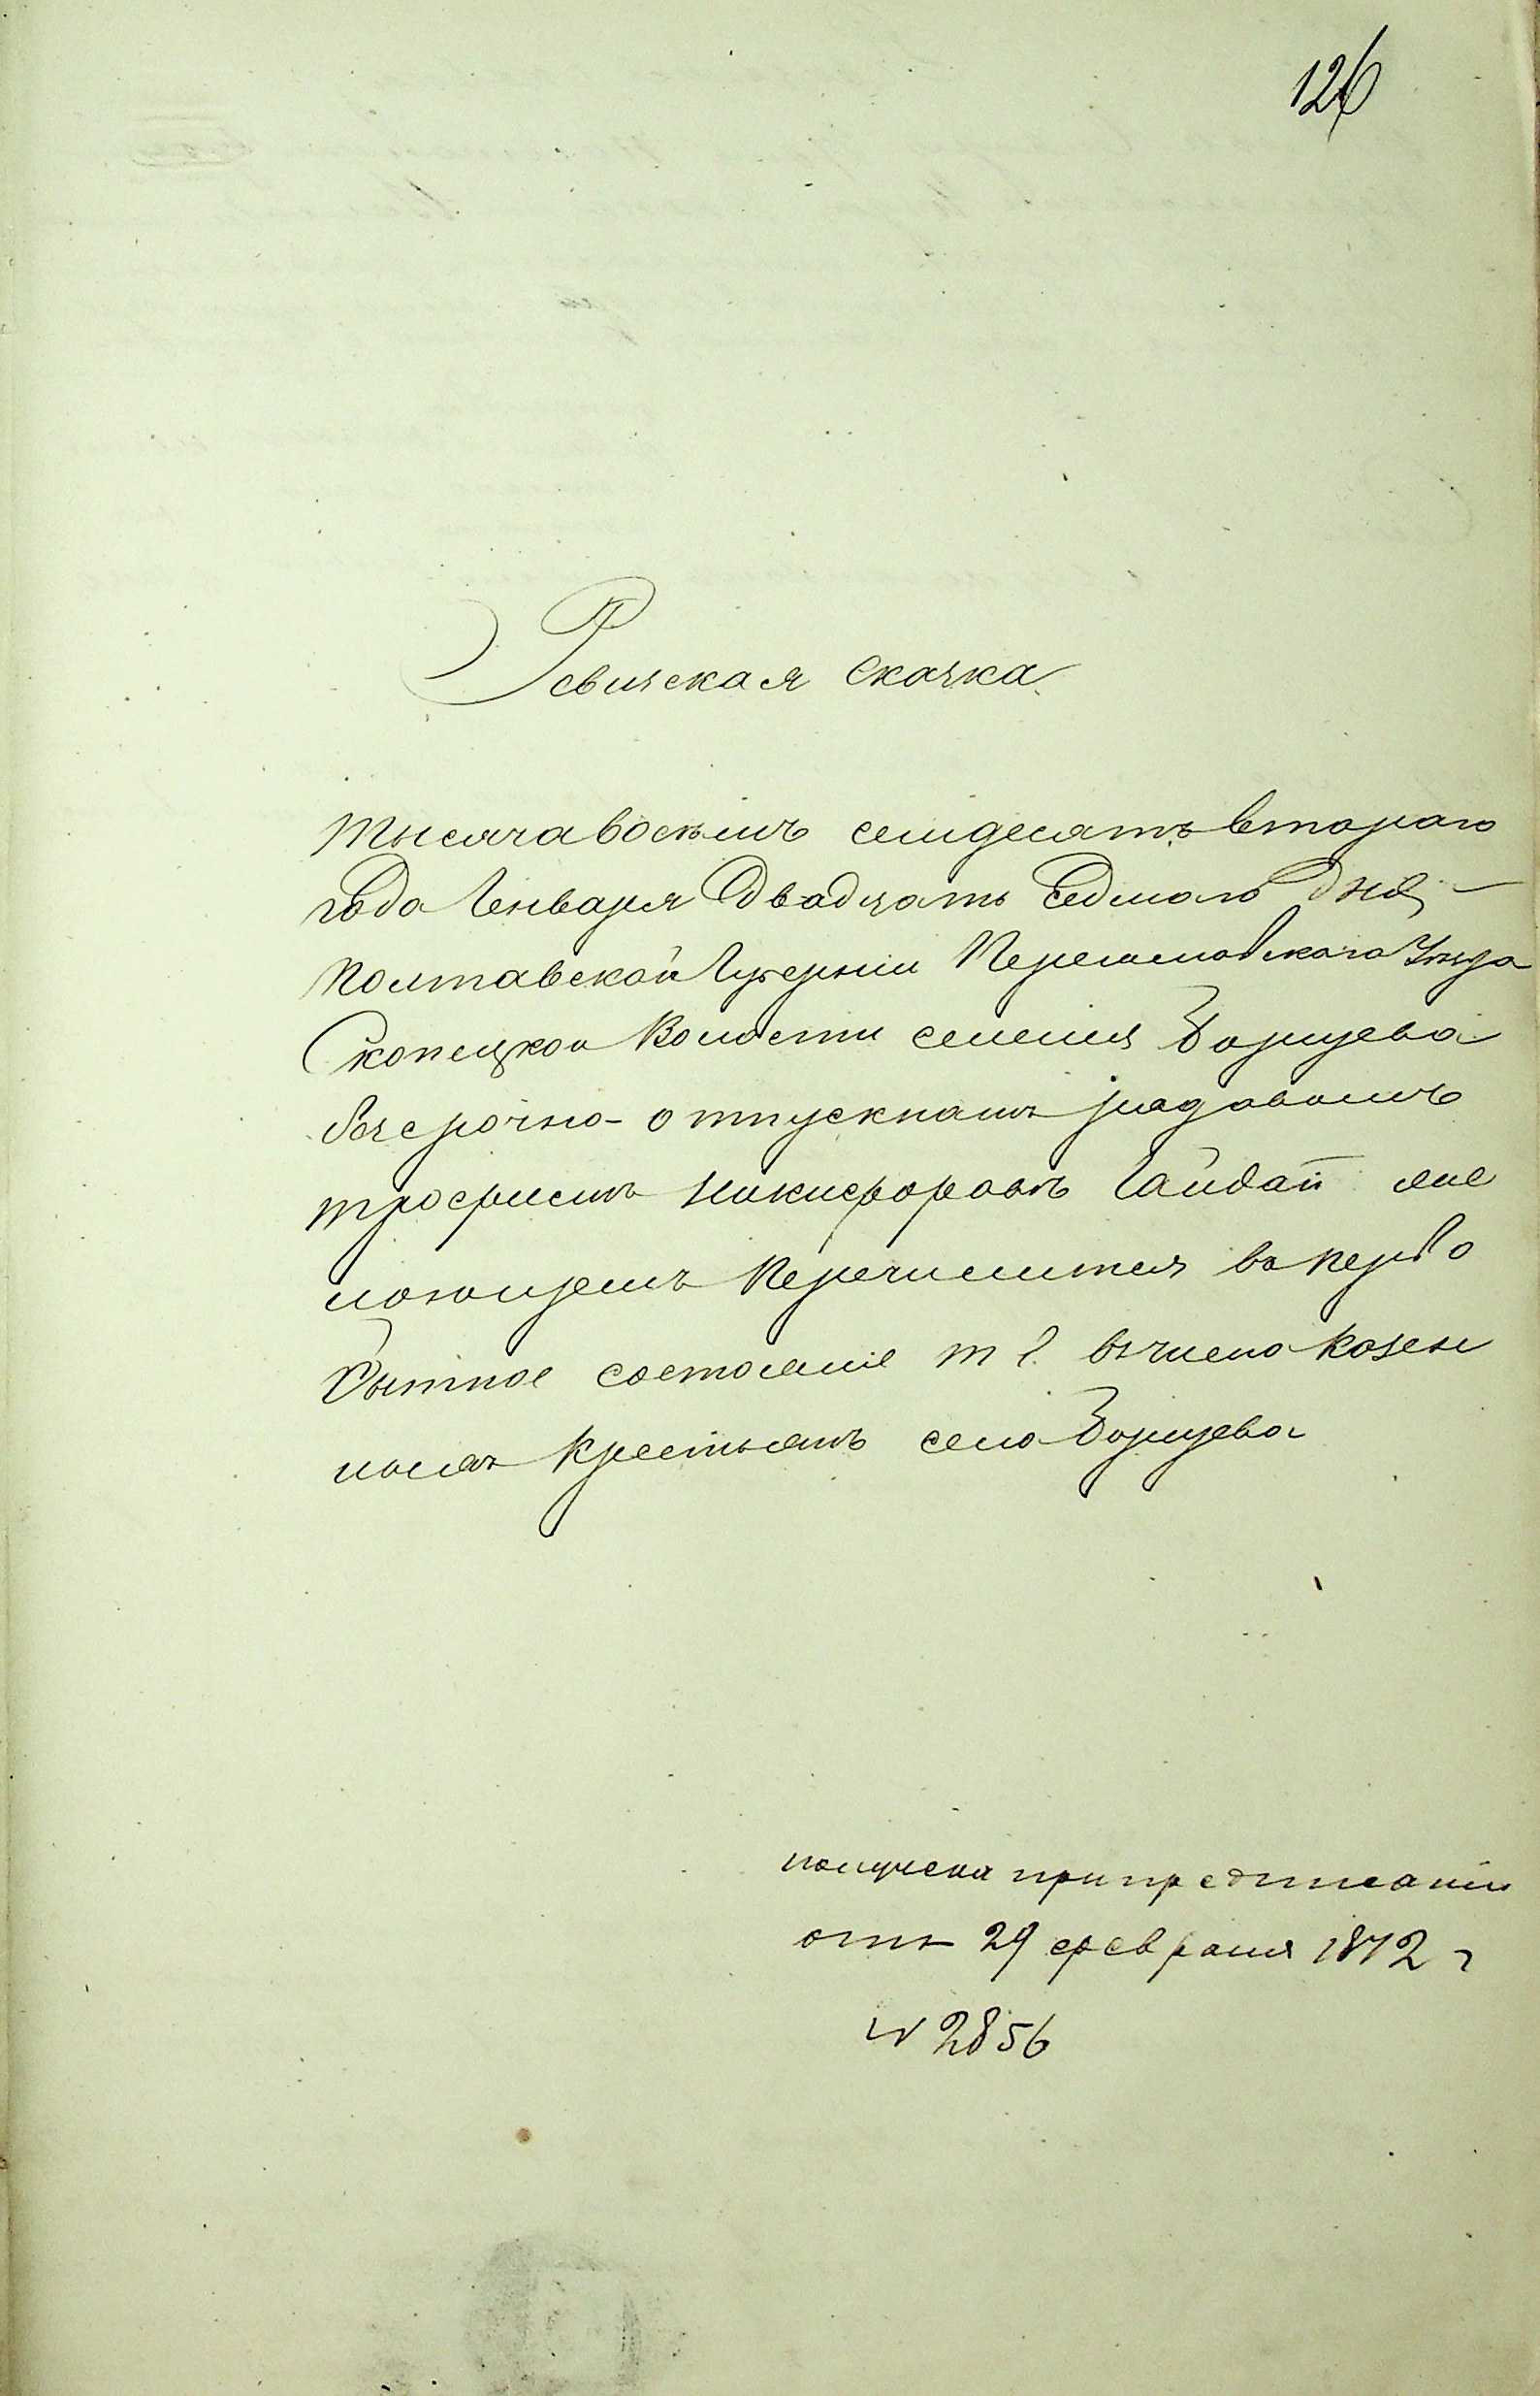 126
Ревизская сказка
Тысяча восемъ семдесятъ втораго
года Генваря двадцать седмого дня
Полтавской Губернии Переяславскаго Уезда
Скопецкой Волости селения Борщева
безсрочно-отпускнамъ рядовомъ
трофисмъ Никифоровъ Гайдай не
могущемъ перечислится въ перво
бытное состояние т е. въ число казен
ныхъ крестьянъ село Борщева
получена при предписании
отъ 29 февраля 1872 г
N 2856